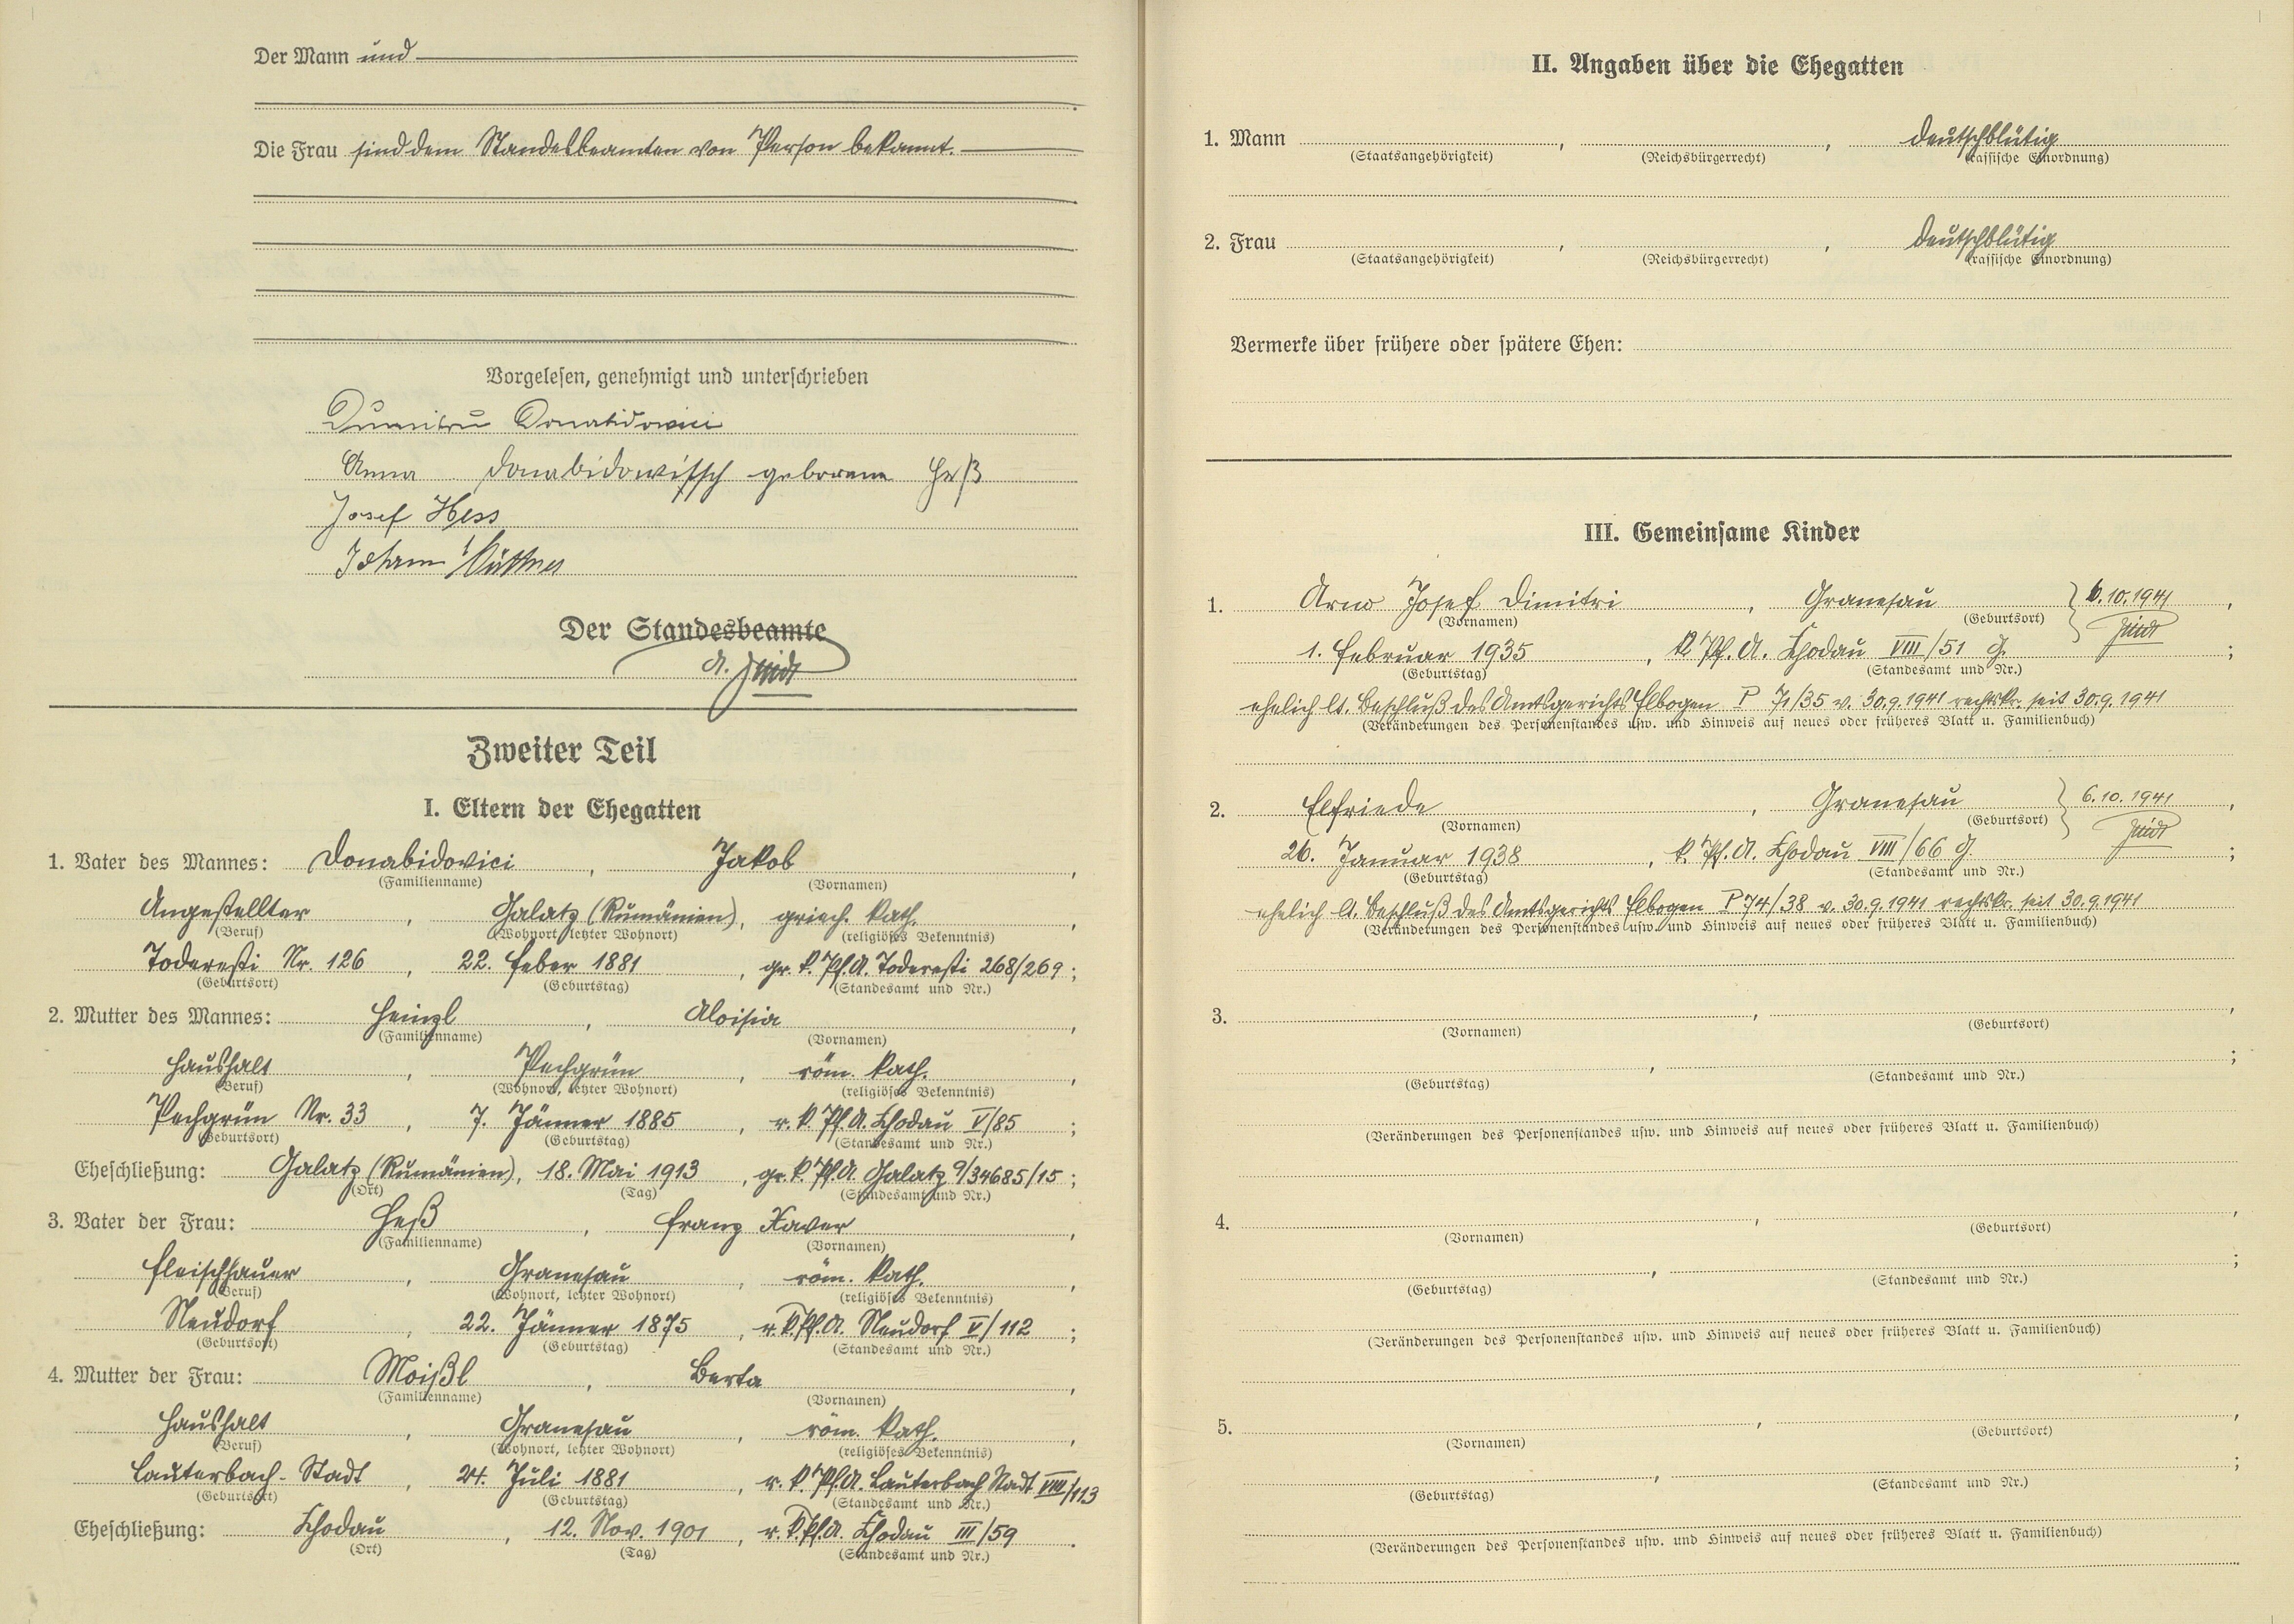 Der Mann und
Die Frau sind dem Standesbeamten von Person bekannt.
Vorgelesen, genehmigt und unterschrieben
Dumitru Donabidowici
Anna Donabidowitsch geborene Heß
Josef Hess
Johann Büttner
Der Standesbeamte
A.
Zweiter Teil
I. Eltern der Ehegatten
1. Vater des Mannes: Donabidovici, Jakob,
(Familienname) (Vornamen)
Angestellter, Galatz (Rumänien), griech. kath.,
(Beruf) (Wohnort, letzter Wohnort) (religiöses Bekenntnis)
Toderesti Nr. 126, 22. Feber 1881, gr. k. Pf. A. Toderesti 268/269;
(Geburtsort) (Geburtstag) (Standesamt und Nr.)
2. Mutter des Mannes: Heinzl, Aloisia,
(Familienname) (Vornamen)
Haushalt, Pechgrün, röm. kath.,
(Beruf) (Wohnort, letzter Wohnort) (religiöses Bekenntnis)
Pechgrün Nr. 33, 7. Jänner 1885, r. k. Pf. A. Chodau V/85;
(Geburtsort) (Geburtstag) (Standesamt und Nr.)
Eheschließung: Galatz (Rumänien), 18. Mai 1913, gr. k. Pf. A. Galatz 9/34685/15;
(Ort) (Tag) (Standesamt und Nr.)
3. Vater der Frau: Heß, Franz Xaver,
(Familienname) (Vornamen)
Fleischhauer, Granesau, röm. kath.,
(Beruf) (Wohnort, letzter Wohnort) (religiöses Bekenntnis)
Neudorf, 22. Jänner 1875, r. k. Pf. A. Neudorf V/112;
(Geburtsort) (Geburtstag) (Standesamt und Nr.)
4. Mutter der Frau: Moißl, Berta,
(Familienname) (Vornamen)
Haushalt, Granesau, röm. kath.,
(Beruf) (Wohnort, letzter Wohnort) (religiöses Bekenntnis)
Lauterbach-Stadt, 24. Juli 1881, r. k. Pf. A. Lauterbach Stadt VIII/113
(Geburtsort) (Geburtstag) (Standesamt und Nr.)
Eheschließung: Chodau, 12. Nov. 1901, r. k. Pf. A. Chodau III/59.
(Ort) (Tag) (Standesamt und Nr.)
II. Angaben über die Ehegatten
1. Mann , , deutschblütig
(Staatsangehörigkeit) (Reichsbürgerrecht) (rassische Einordnung)
2. Frau , , deutschblütig
(Staatsangehörigkeit) (Reichsbürgerrecht) (rassische Einordnung)
Vermerke über frühere oder spätere Ehen:
III. Gemeinsame Kinder
1. Arno Josef Dimitri, Granesau } 6.10.1941,
(Vornamen) (Geburtsort)
1. Februar 1935, k. Pf. A. Chodau VIII/51 G.;
(Geburtstag) (Standesamt und Nr.)
ehelich lt. Beschluß des Amtsgerichts Elbogen P 71/35 v. 30.9.1941 rechtskr. seit 30.9.1941
(Veränderungen des Personenstandes usw. und Hinweis auf neues oder früheres Blatt u. Familienbuch)
2. Elfriede, Granesau } 6.10.1941,
(Vornamen) (Geburtsort)
26. Januar 1938, k. Pf. A. Chodau VIII/66 G.;
(Geburtstag) (Standesamt und Nr.)
ehelich lt. Beschluß des Amtsgerichts Elbogen P 74/38 v. 30.9.1941 rechtskr. seit 30.9.1941
(Veränderungen des Personenstandes usw. und Hinweis auf neues oder früheres Blatt u. Familienbuch)
3. , ,
(Vornamen) (Geburtsort)
, ;
(Geburtstag) (Standesamt und Nr.)
(Veränderungen des Personenstandes usw. und Hinweis auf neues oder früheres Blatt u. Familienbuch)
4. , ,
(Vornamen) (Geburtsort)
, ;
(Geburtstag) (Standesamt und Nr.)
(Veränderungen des Personenstandes usw. und Hinweis auf neues oder früheres Blatt u. Familienbuch)
5. , ,
(Vornamen) (Geburtsort)
, ;
(Geburtstag) (Standesamt und Nr.)
(Veränderungen des Personenstandes usw. und Hinweis auf neues oder früheres Blatt u. Familienbuch)